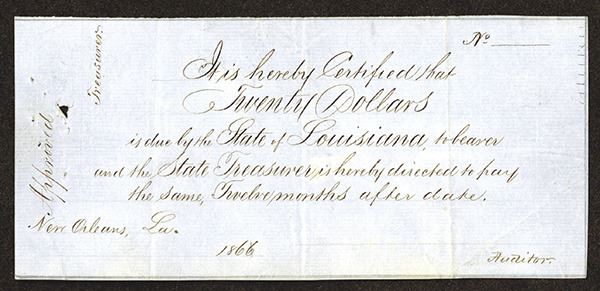 No
It is hereby Certified that
Twenty Dollars
is due by the State of Louisiana, to bearer
and the State Treasurer, is hereby directed to pay
the same, Twelve months after date.
New Orleans, La.
1866
Auditor.
Approved
Treasurer